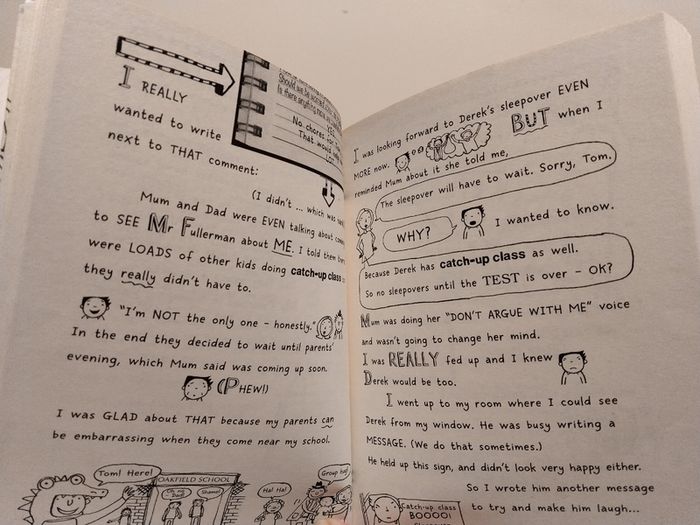 Should we be worried
Is there anything
YES
No chores
That would
LOT
I REALLY
wanted to write
next to THAT comment:
(I didn't ... which was
Mum and Dad were EVEN talking about
to SEE Mr Fullerman about ME. I told them
were LOADS of other kids doing catch-up class
they really didn't have to.
"I'm NOT the only one - honestly."
In the end they decided to wait until parents'
evening, which Mum said was coming up soon.
(PHEW!)
I was GLAD about THAT because my parents can
be embarrassing when they come near my school.
Tom! Here!
OAKFIELD SCHOOL
Shame!
Ha! Ha!
Group hug
I was looking forward to Derek's sleepover EVEN
MORE now. BUT when I
reminded Mum about it she told me,
The sleepover will have to wait. Sorry, Tom.
WHY? I wanted to know.
Because Derek has catch-up class as well.
So no sleepovers until the TEST is over - OK?
Mum was doing her "DON'T ARGUE WITH ME" voice
and wasn't going to change her mind.
I was REALLY fed up and I knew
Derek would be too.
I went up to my room where I could see
Derek from my window. He was busy writing a
MESSAGE. (We do that sometimes.)
He held up this sign, and didn't look very happy either.
So I wrote him another message
to try and make him laugh...
Catch-up class
BOOOO!